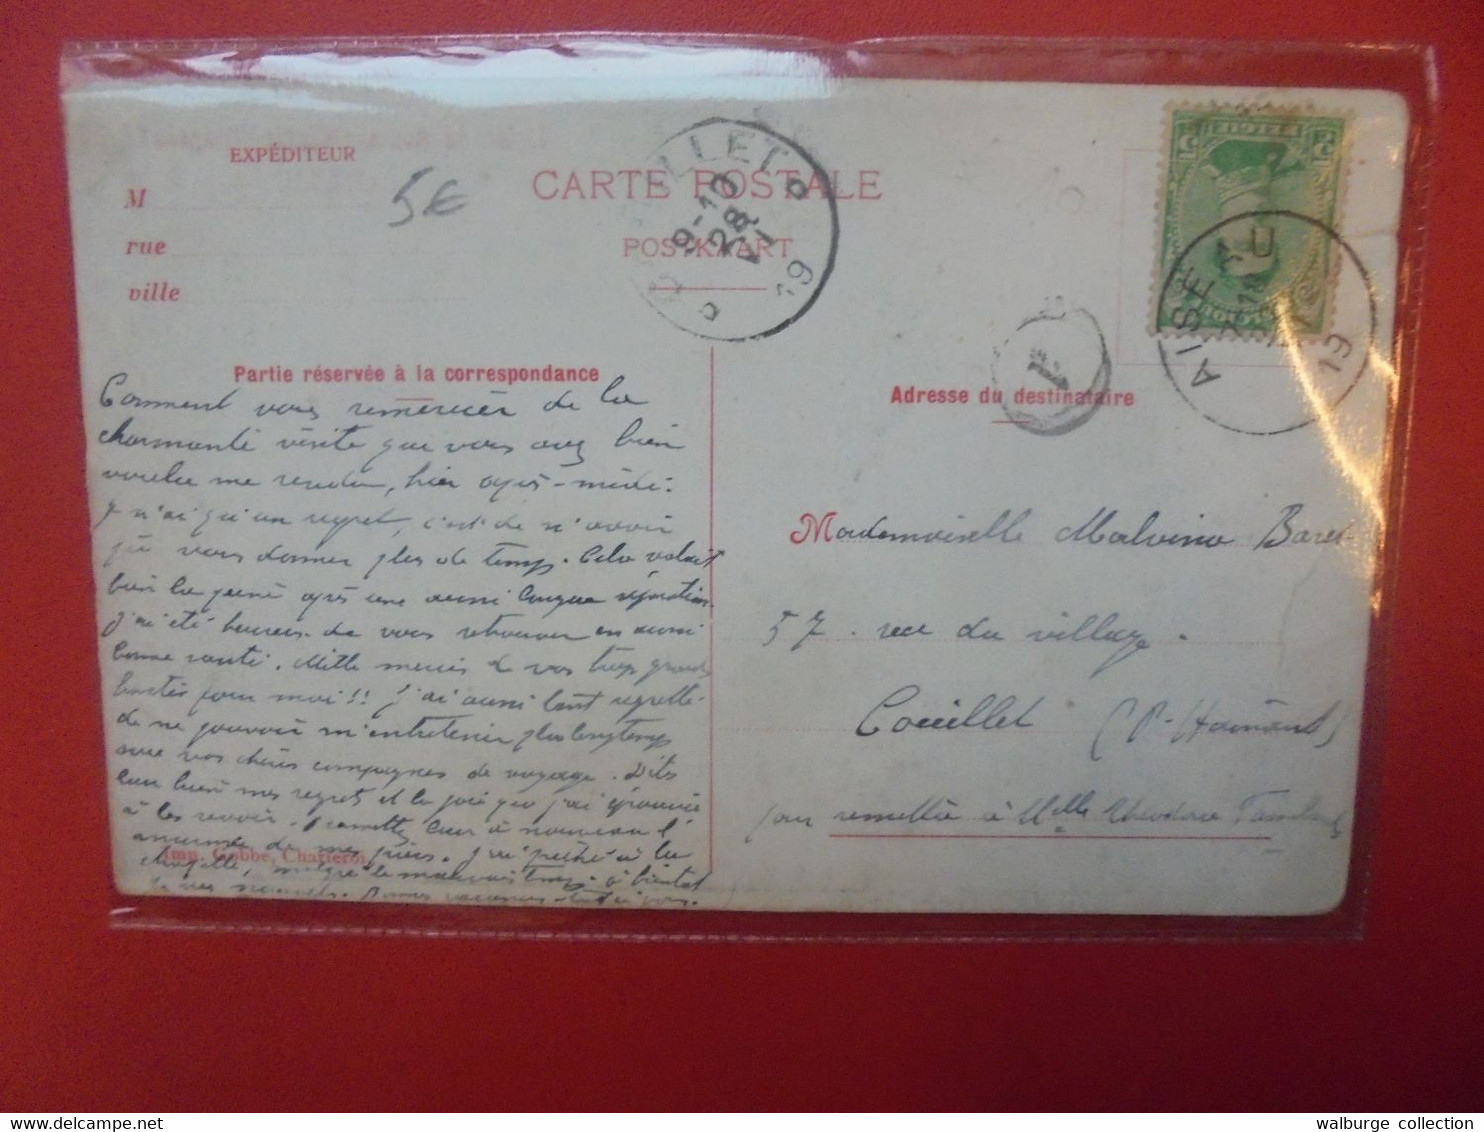 EXPÉDITEUR
M
rue
ville
5€
CARTE POSTALE
POSTKAART
9-10
28
VI
19
AISEAU
19
1
Partie réservée à la correspondance
Adresse du destinataire
Comment vous remercier de la
charmante visite que vous avez bien
voulu me rendre, hier après-midi.
Je n'ai qu'un regret, c'est de n'avoir
pu vous donner plus de temps. Cela valait
bien la peine après une aussi longue séparation.
J'ai été heureux de vous retrouver en aussi
bonne santé. Mille mercis de vos trop grandes
bontés pour moi!! J'ai aussi tant regretté
de ne pouvoir m'entretenir plus longtemps
avec vos chères compagnes de voyage. Dites
leur bien mes regrets et la joie que j'ai éprouvée
à les revoir. Promettez leur à nouveau l'
assurance de mes prières. J'ai
chapelle, malgré le mauvais temps. à bientôt
de vos nouvelles. Bonnes vacances
Imp. Gobbe, Charleroi
Mademoiselle Malvina Baret
57. rue du village.
Couillet (P. Hainaut)
pour remettre à Melle Théodora
walburge collection